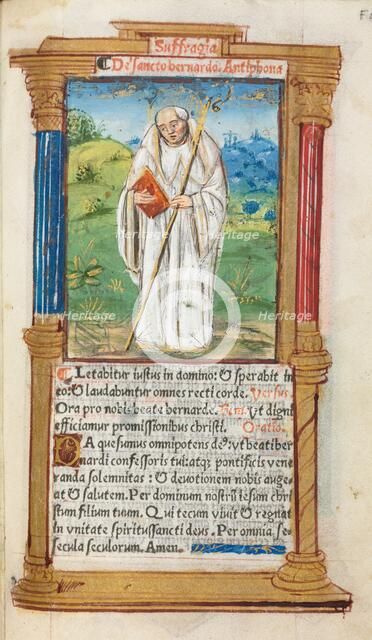 Suffragia
De sancto bernardo. Antiphona
Letabitur iustus in domino: & sperabit in
eo: & laudabuntur omnes recti corde. Versus.
Ora pro nobis beate bernarde. Rem. Ut digni
efficiamur promissionibus christi. Oratio.
DA quesumus omnipotens de9: ut beati ber
nardi confessoris tui: atq; pontificis vene
randa solemnitas: & devotionem nobis auge-
at & salutem. Per dominum nostrū iesum chri
stum filium tuum. Qui tecum vivit & regnat
in unitate spiritussancti deus. Per omnia se-
secula seculorum. Amen.
Heritage
Heritage
Heritage
Heritage
Heritage
Heritage